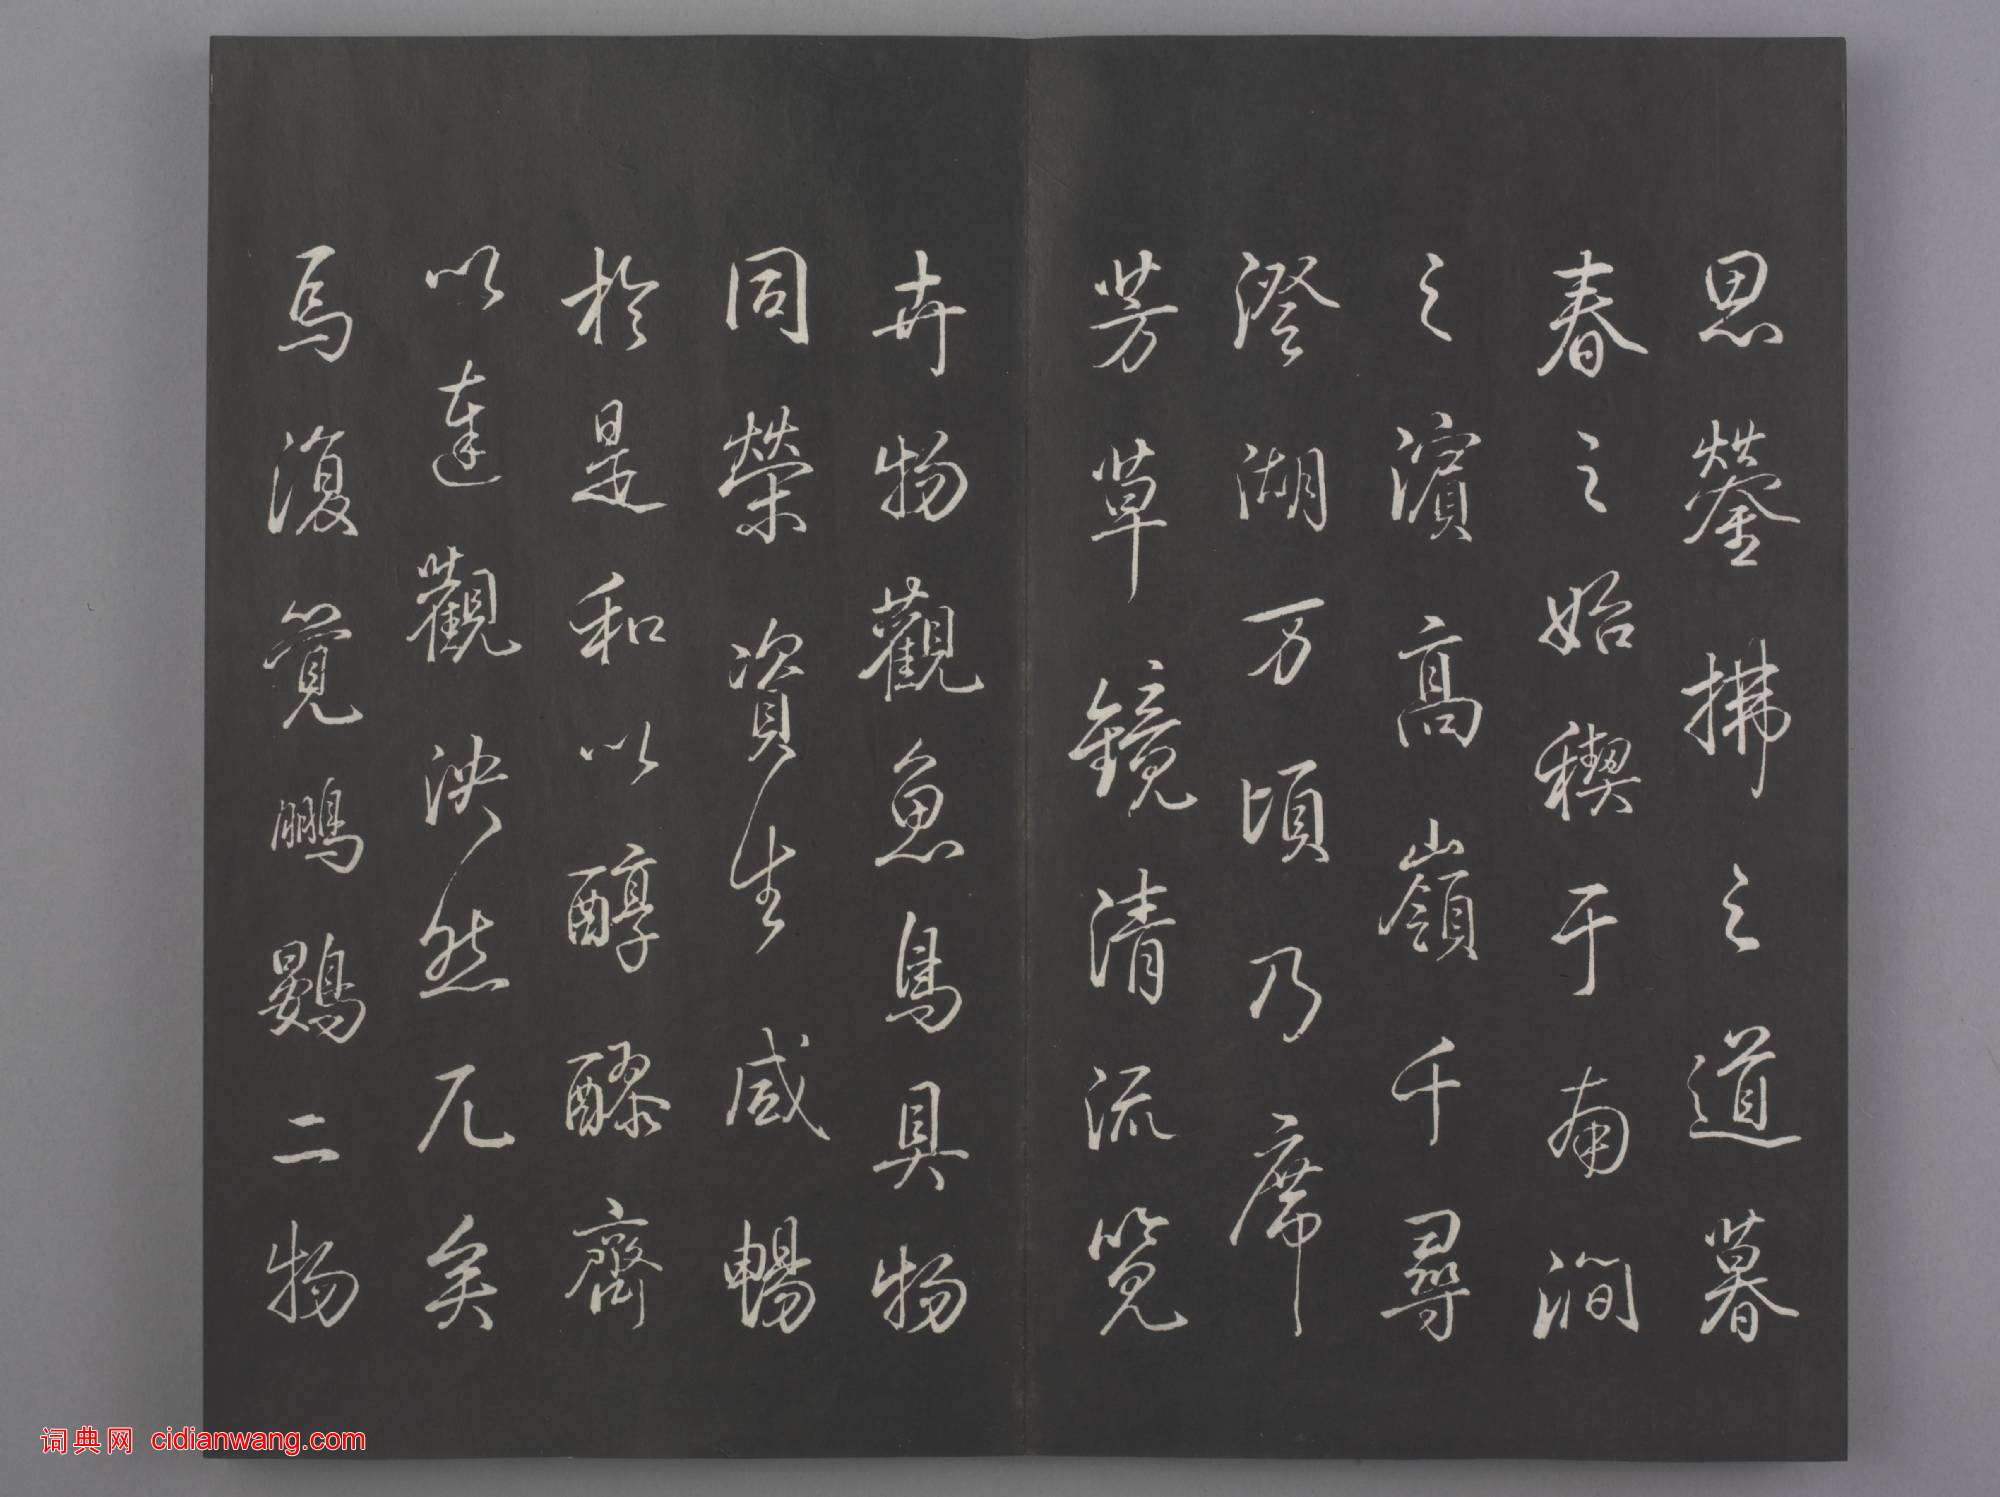 思鎣拂之道暮
春之始稧于南澗
之濱高嶺千尋
澄湖万頃乃席
芳草鏡清流覽
卉物觀魚鳥具物
同榮資生咸暢
於是和以醇醪齊
以達觀泱然兀矣
焉復覺鵬鷃二物
词典网 cidianwang.com